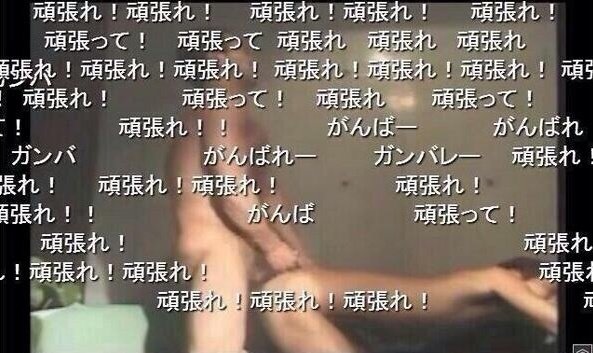 頑張れ！頑張れ！ 頑張れ！頑張れ！ 頑張れ！
頑張って！ 頑張って 頑張れ 頑張れ 頑張れ
頑張れ！頑張れ！頑張れ！ 頑張れ！頑張れ！頑張れ！ 頑張
ガンバ
！ 頑張れ！ 頑張って！ 頑張れ 頑張って！
て！ 頑張れ！！ がんばー がんばれ
ガンバ がんばれー ガンバレー 頑張れ！
張れ！ 頑張れ！頑張れ！ 頑張れ！
頑張れ！！ がんば 頑張って！
頑張れ！ 頑張れ
れ！頑張れ！頑張れ！ 頑張れ
頑張れ！頑張れ！頑張れ！